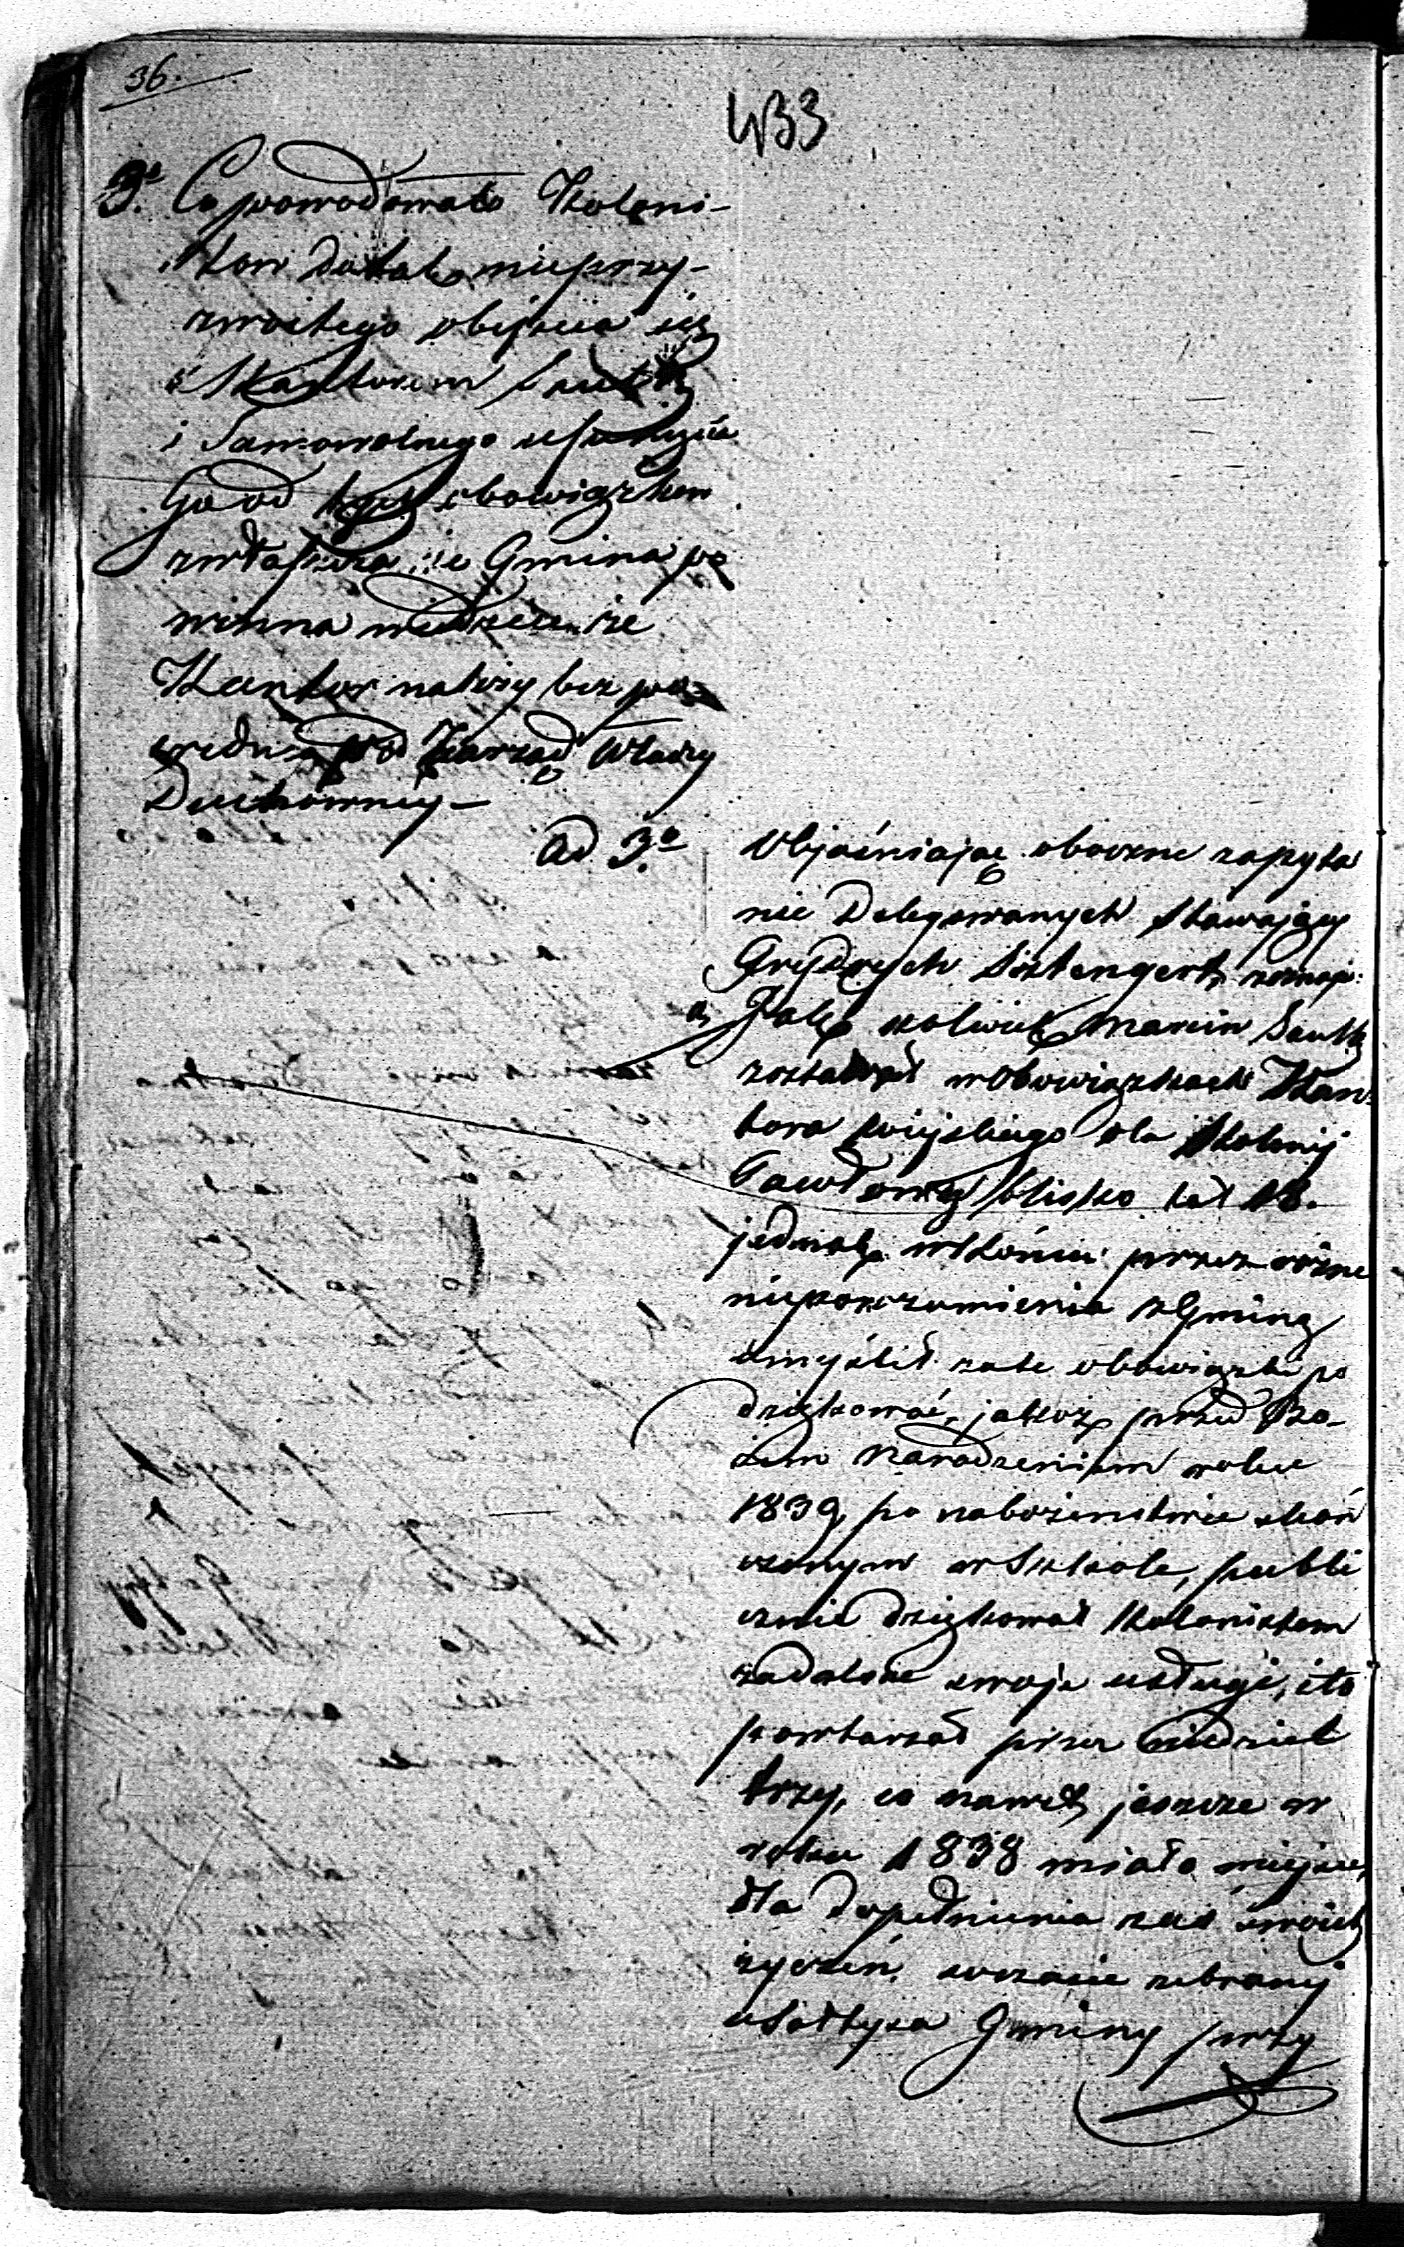 36.
433
3o Co powodowało Koloni-
stow do tak nieprzy-
zwoitego obejścia się
z Kantorem Sautk
i Samowolnego usunięcia
Go od tych obowiązkow
zwłaszcza że Gmina po
winna wiedzieć że
Kantor należy bez po-
srednio pod Zarząd Władzy
Duchowney—
Ad 3o Objaśniając oboczne zapyta
nie Delegowanych Stawający
Frydrych zeznaje:
Jak kolwiek Marcin Sautk
zostawał w Obowiązkach Kan-
tora wiejskiego dla Kolonij
blisko lat 18.
jednak w końcu przez różne
nieporozumienia z Gminą
umyślił za te obowiązki po
dziękować, jakoż przed Bo-
żem Narodzeniem roku
1839 po nabożenstwie skoń
czonym w Szkole, publi
cznie dziękował Kolonistom
za dalsze swoje usługi, i to
powtarzał przez niedziel
trzy, co nawet jeszcze w
roku 1838 miało miejsce,
dla dopełnienia zaś swoich
życzeń, w czasie zebranej
u Sołtysa Gminy przy